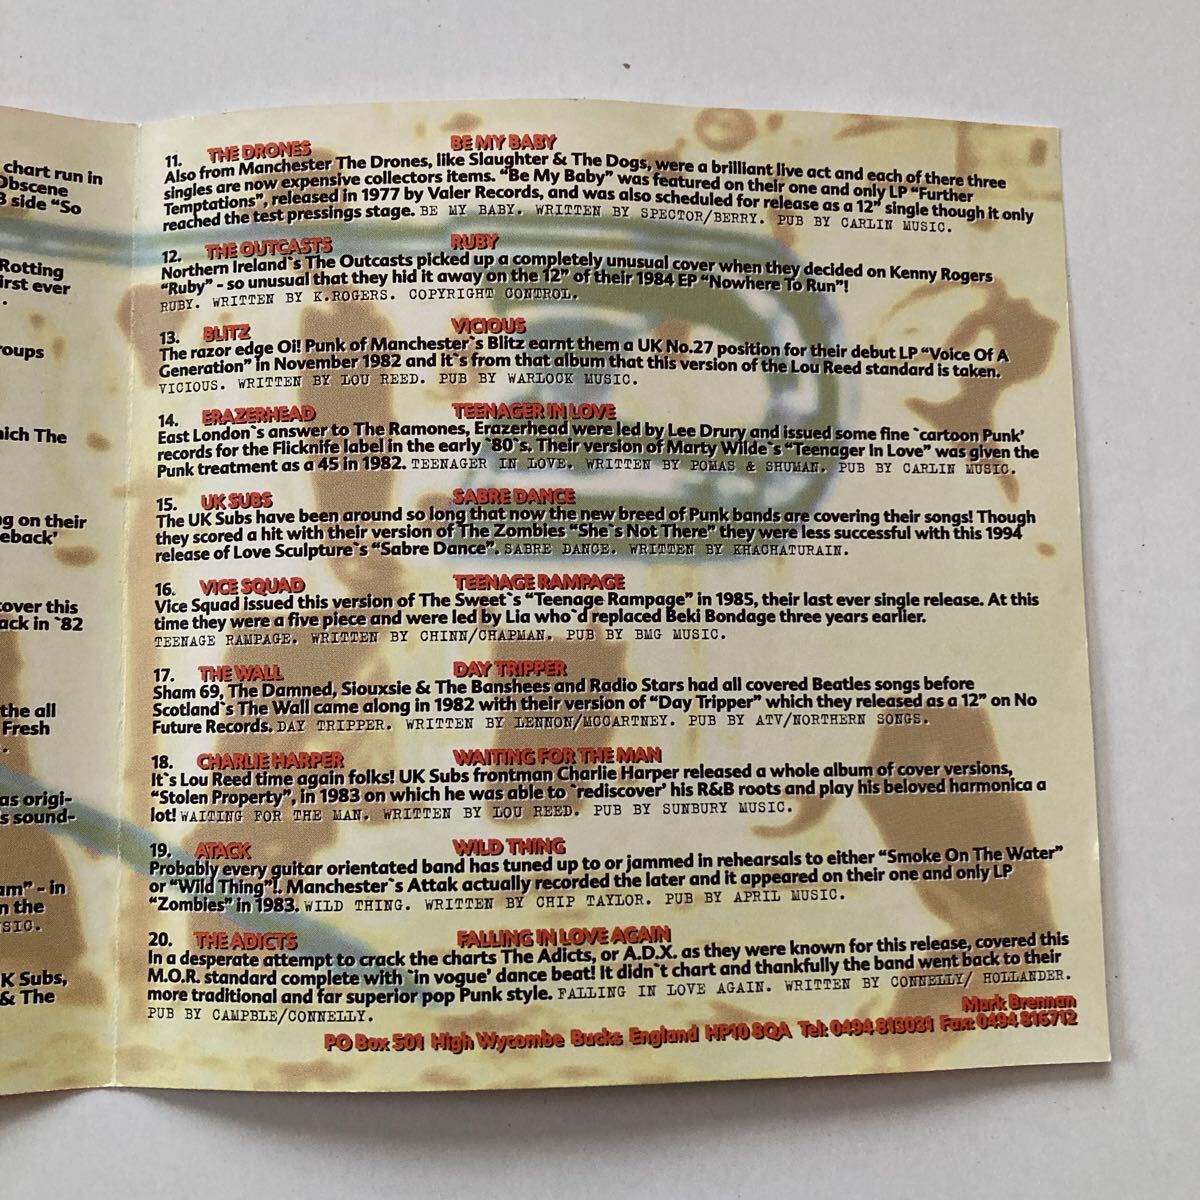 chart run in
Obscene
B side "So
Rotting
first ever
.
roups
hich The
ng on their
eback'
cover this
ack in `82
the all
Fresh
.
as origi-
s sound-
am" - in
n the
SIC.
K Subs,
& The
11. THE DRONES BE MY BABY
Also from Manchester The Drones, like Slaughter & The Dogs, were a brilliant live act and each of there three
singles are now expensive collectors items. "Be My Baby" was featured on their one and only LP "Further
Temptations", released in 1977 by Valer Records, and was also scheduled for release as a 12" single though it only
reached the test pressings stage. BE MY BABY. WRITTEN BY SPECTOR/BERRY. PUB BY CARLIN MUSIC.
12. THE OUTCASTS RUBY
Northern Ireland`s The Outcasts picked up a completely unusual cover when they decided on Kenny Rogers
"Ruby" - so unusual that they hid it away on the 12" of their 1984 EP "Nowhere To Run"!
RUBY. WRITTEN BY K.ROGERS. COPYRIGHT CONTROL.
13. BLITZ VICIOUS
The razor edge Oi! Punk of Manchester`s Blitz earnt them a UK No.27 position for their debut LP "Voice Of A
Generation" in November 1982 and it`s from that album that this version of the Lou Reed standard is taken.
VICIOUS. WRITTEN BY LOU REED. PUB BY WARLOCK MUSIC.
14. ERAZERHEAD TEENAGER IN LOVE
East London`s answer to The Ramones, Erazerhead were led by Lee Drury and issued some fine `cartoon Punk'
records for the Flicknife label in the early `80`s. Their version of Marty Wilde`s "Teenager In Love" was given the
Punk treatment as a 45 in 1982. TEENAGER IN LOVE. WRITTEN BY POMAS & SHUMAN. PUB BY CARLIN MUSIC.
15. UK SUBS SABRE DANCE
The UK Subs have been around so long that now the new breed of Punk bands are covering their songs! Though
they scored a hit with their version of The Zombies "She`s Not There" they were less successful with this 1994
release of Love Sculpture`s "Sabre Dance". SABRE DANCE. WRITTEN BY KHACHATURAIN.
16. VICE SQUAD TEENAGE RAMPAGE
Vice Squad issued this version of The Sweet`s "Teenage Rampage" in 1985, their last ever single release. At this
time they were a five piece and were led by Lia who`d replaced Beki Bondage three years earlier.
TEENAGE RAMPAGE. WRITTEN BY CHINN/CHAPMAN. PUB BY BMG MUSIC.
17. THE WALL DAY TRIPPER
Sham 69, The Damned, Siouxsie & The Banshees and Radio Stars had all covered Beatles songs before
Scotland`s The Wall came along in 1982 with their version of "Day Tripper" which they released as a 12" on No
Future Records. DAY TRIPPER. WRITTEN BY LENNON/MCCARTNEY. PUB BY ATV/NORTHERN SONGS.
18. CHARLIE HARPER WAITING FOR THE MAN
It`s Lou Reed time again folks! UK Subs frontman Charlie Harper released a whole album of cover versions,
"Stolen Property", in 1983 on which he was able to `rediscover' his R&B roots and play his beloved harmonica a
lot! WAITING FOR THE MAN. WRITTEN BY LOU REED. PUB BY SUNBURY MUSIC.
19. ATACK WILD THING
Probably every guitar orientated band has tuned up to or jammed in rehearsals to either "Smoke On The Water"
or "Wild Thing"!. Manchester`s Attak actually recorded the later and it appeared on their one and only LP
"Zombies" in 1983. WILD THING. WRITTEN BY CHIP TAYLOR. PUB BY APRIL MUSIC.
20. THE ADICTS FALLING IN LOVE AGAIN
In a desperate attempt to crack the charts The Adicts, or A.D.X. as they were known for this release, covered this
M.O.R. standard complete with `in vogue' dance beat! It didn`t chart and thankfully the band went back to their
more traditional and far superior pop Punk style. FALLING IN LOVE AGAIN. WRITTEN BY CONNELLY/ HOLLANDER.
PUB BY CAMPBLE/CONNELLY.
Mark Brennan
PO Box 501 High Wycombe Bucks England HP10 8QA Tel: 0494 813031 Fax: 0494 816712